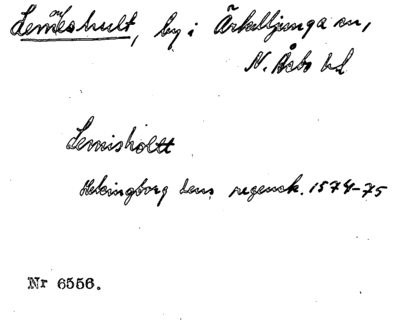 Lemmeshult, by i Örkelljunga sn,
N. Åsbo hd
Lemisholtt
Helsingborg läns regensk. 1574-75
Nr 6556.